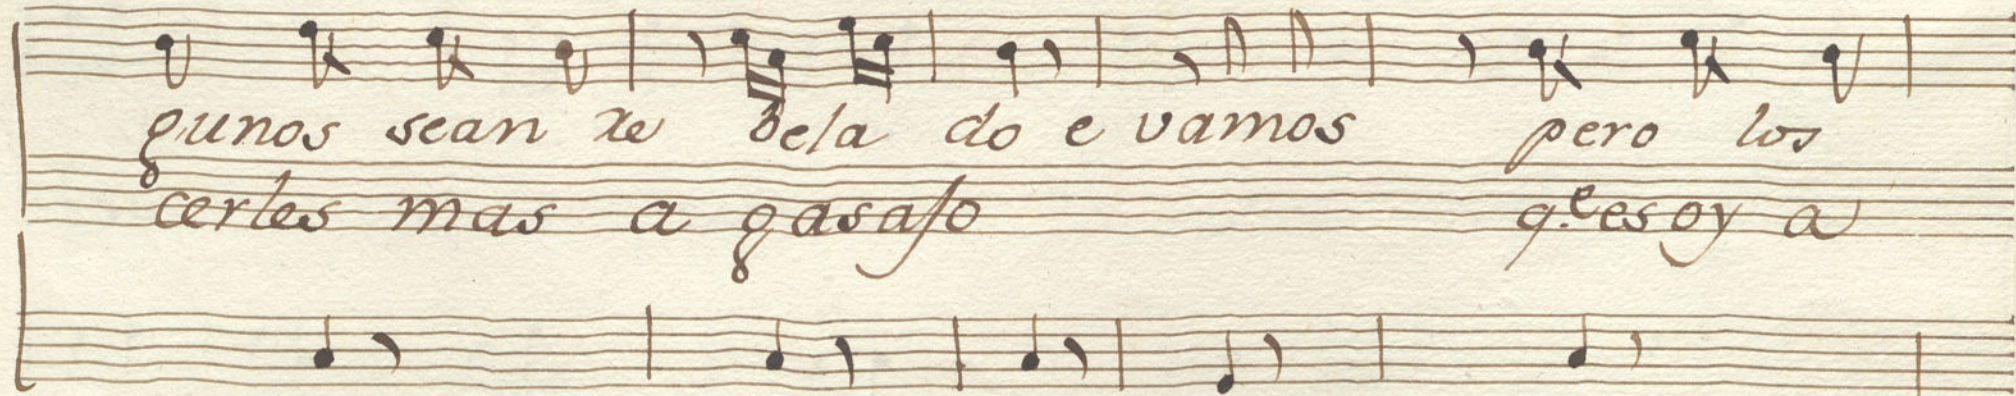 gunos sean re bela do e vamos pero los
cerles mas a gasajo q.e es oy a